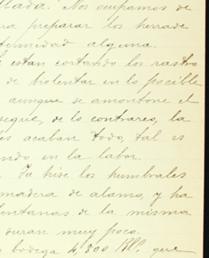 llada. Nos ocupamos de
ra preparar los herrade
fermidad alguna.
e estan cortando los rastro
de violentar en lo posible
aunque se amontone el
segue, de lo contrario, la
es acaban todo, tal es
ando en la labor.
Ya hice los humbrales
madera de alamo, y ha
entanas de la misma
duran muy poco.
bodega 4,300 que